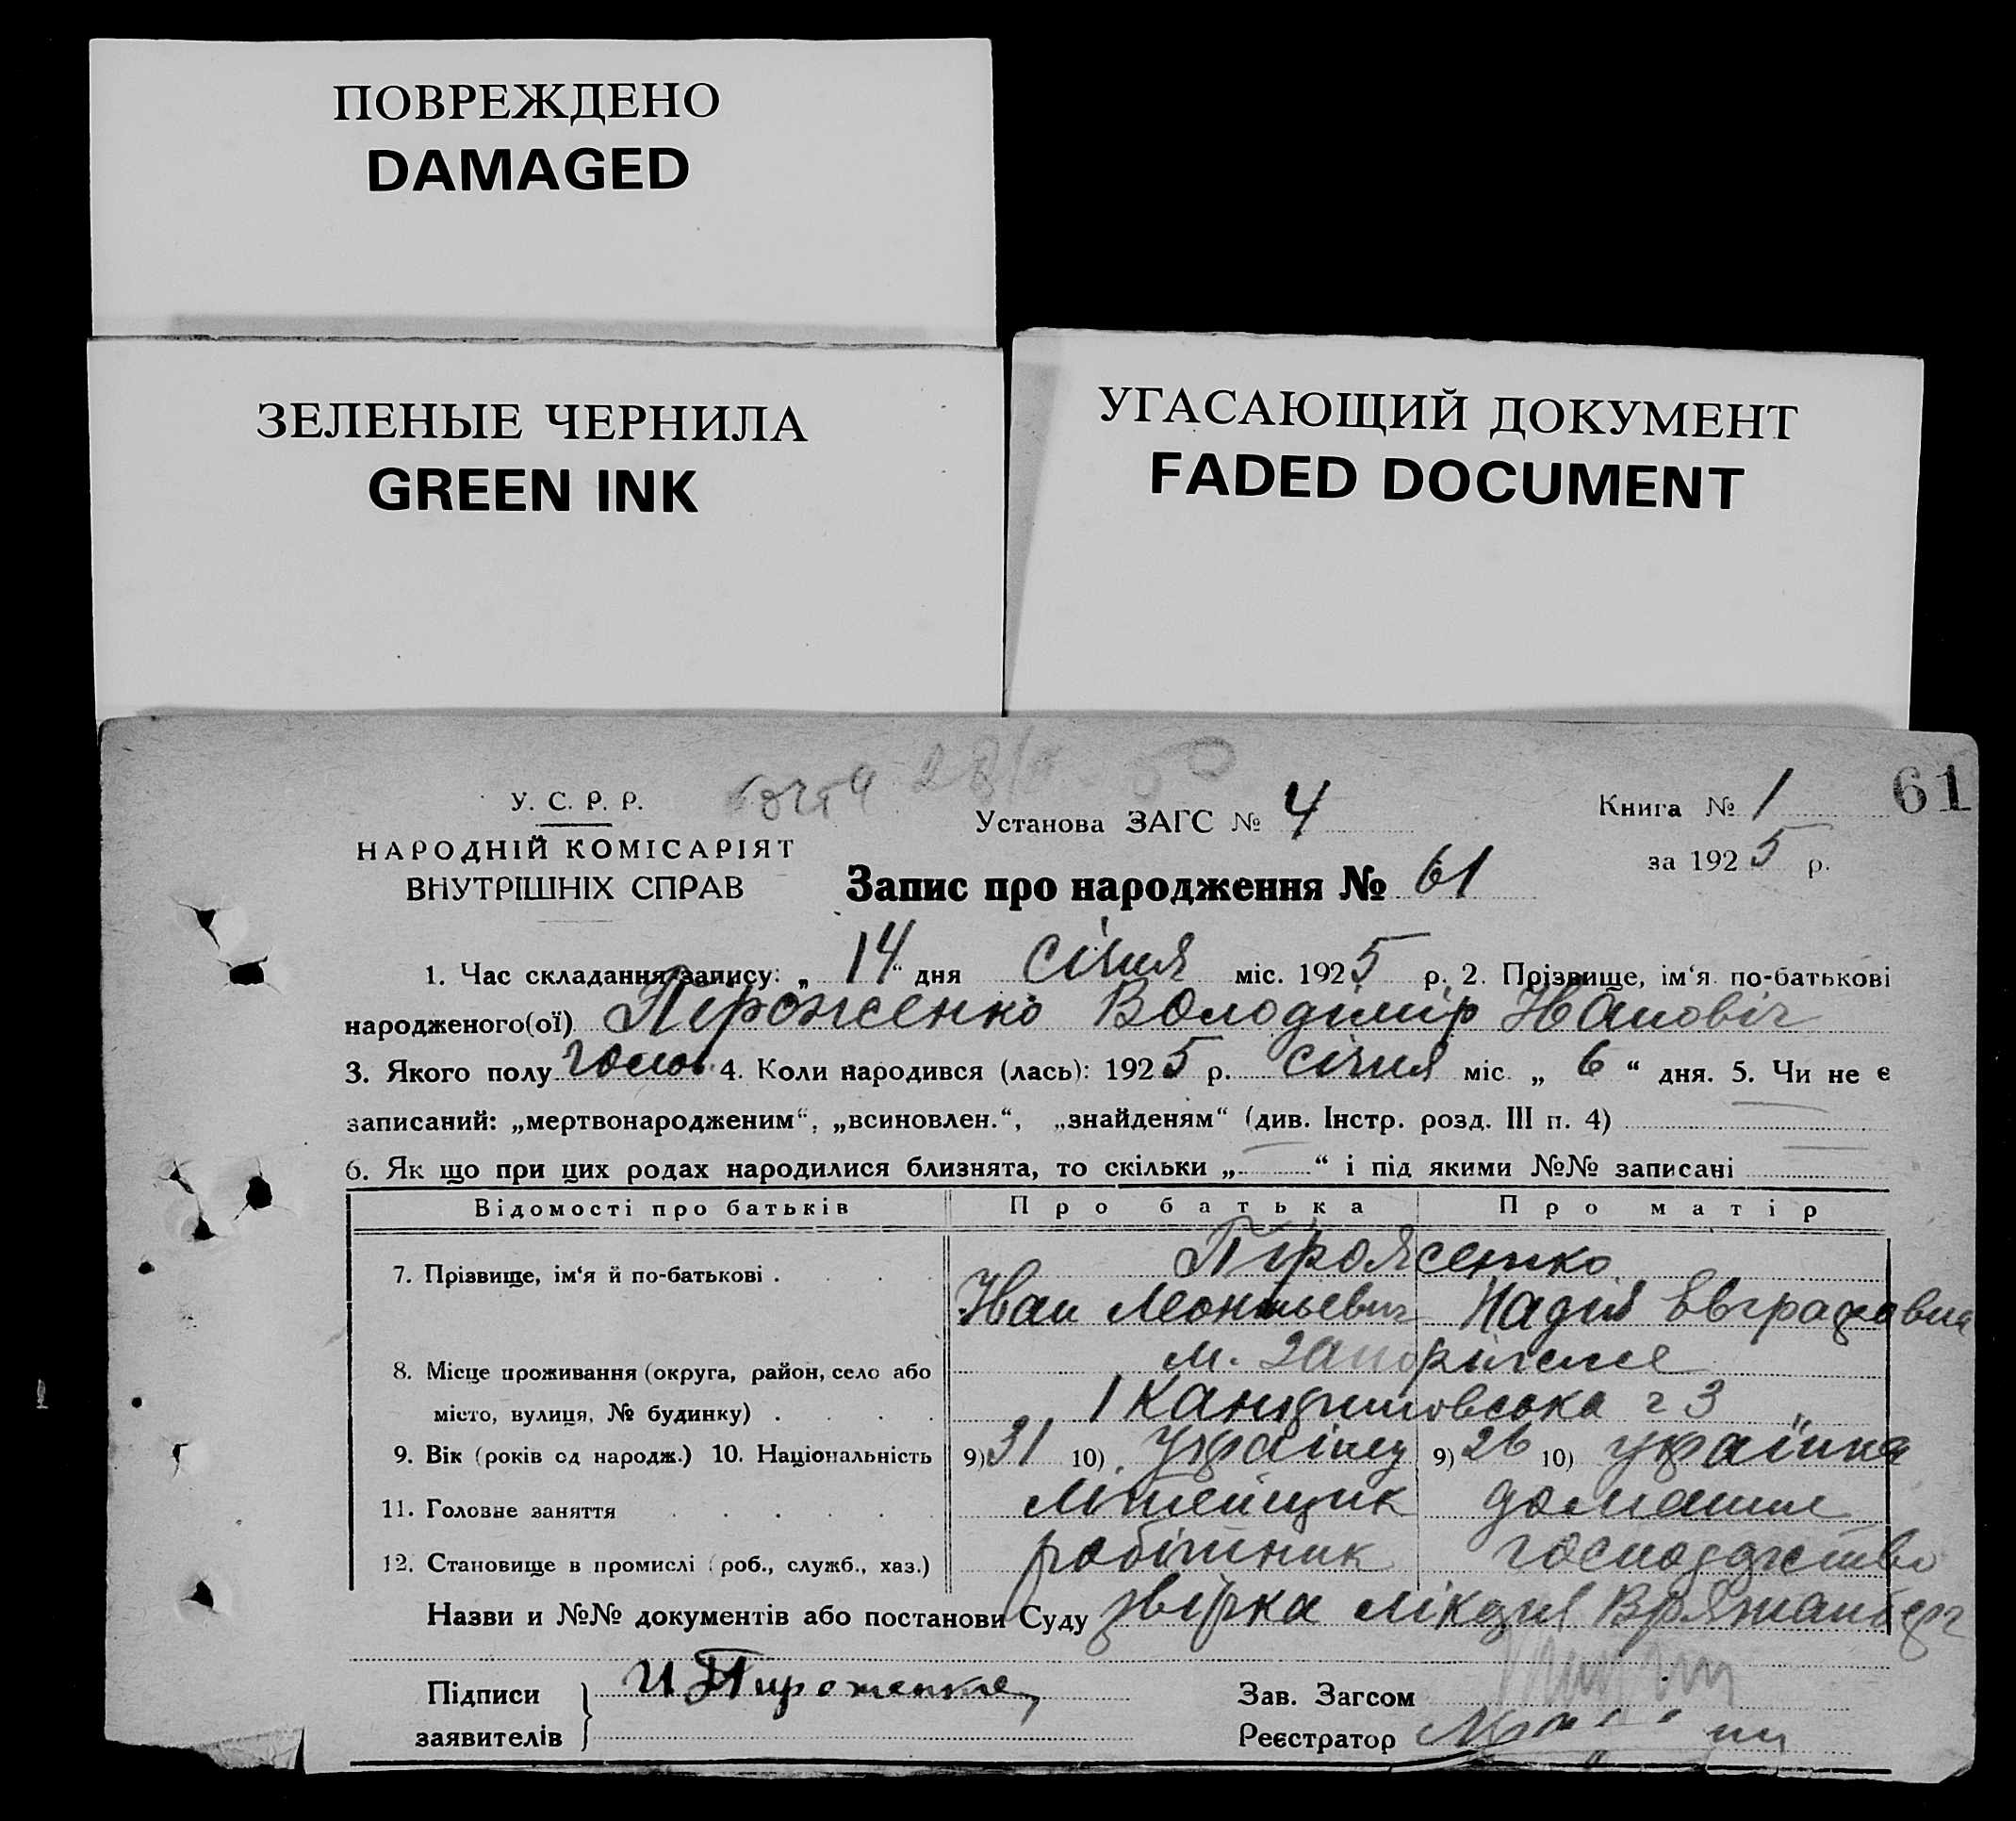 ПОВРЕЖДЕНО
DAMAGED
ЗЕЛЕНЫЕ ЧЕРНИЛА
GREEN INK
УГАСАЮЩИЙ ДОКУМЕНТ
FADED DOCUMENT
У. С. Р. Р.
НАРОДНІЙ КОМІСАРІЯТ
ВНУТРІШНІХ СПРАВ
Установа ЗАГС № 4
Книга № 1
61
за 1925 р.
Запис про народження № 61
1. Час складання запису: „ 14 “ дня січня міс. 1925 р. 2. Прізвище, ім‘я по-батькові
народженого(ої) Піроженко Володімір Іванович
3. Якого полу чолов. 4. Коли народився (лась): 1925 р. січня міс. „ 6 “ дня. 5. Чи не є
записаний: „мертвонародженим“, „всиновлен.“, „знайденям“ (див. Інстр. розд. III п. 4)
6. Як що при цих родах народилися близнята, то скільки „ “ і під якими №№ записані
Відомості про батьків Про батька Про матір
7. Прізвище, ім‘я й по-батькові Піроженко
Иван Леонтьевич Надія Евграфовна
8. Місце проживання (округа, район, село або м. Запоріжжє
місто, вулиця, № будинку) 3
9. Вік (років од народж.) 10. Національність 9) 31 10) Українец 9) 26 10) українка
11. Головне заняття Літейщик домашнє
12. Становище в промислі (роб., служб., хаз.) робітник господарство
Назви и №№ документів або постанови Суду
Підписи И Пироженко
заявителів
Зав. Загсом
Реєстратор